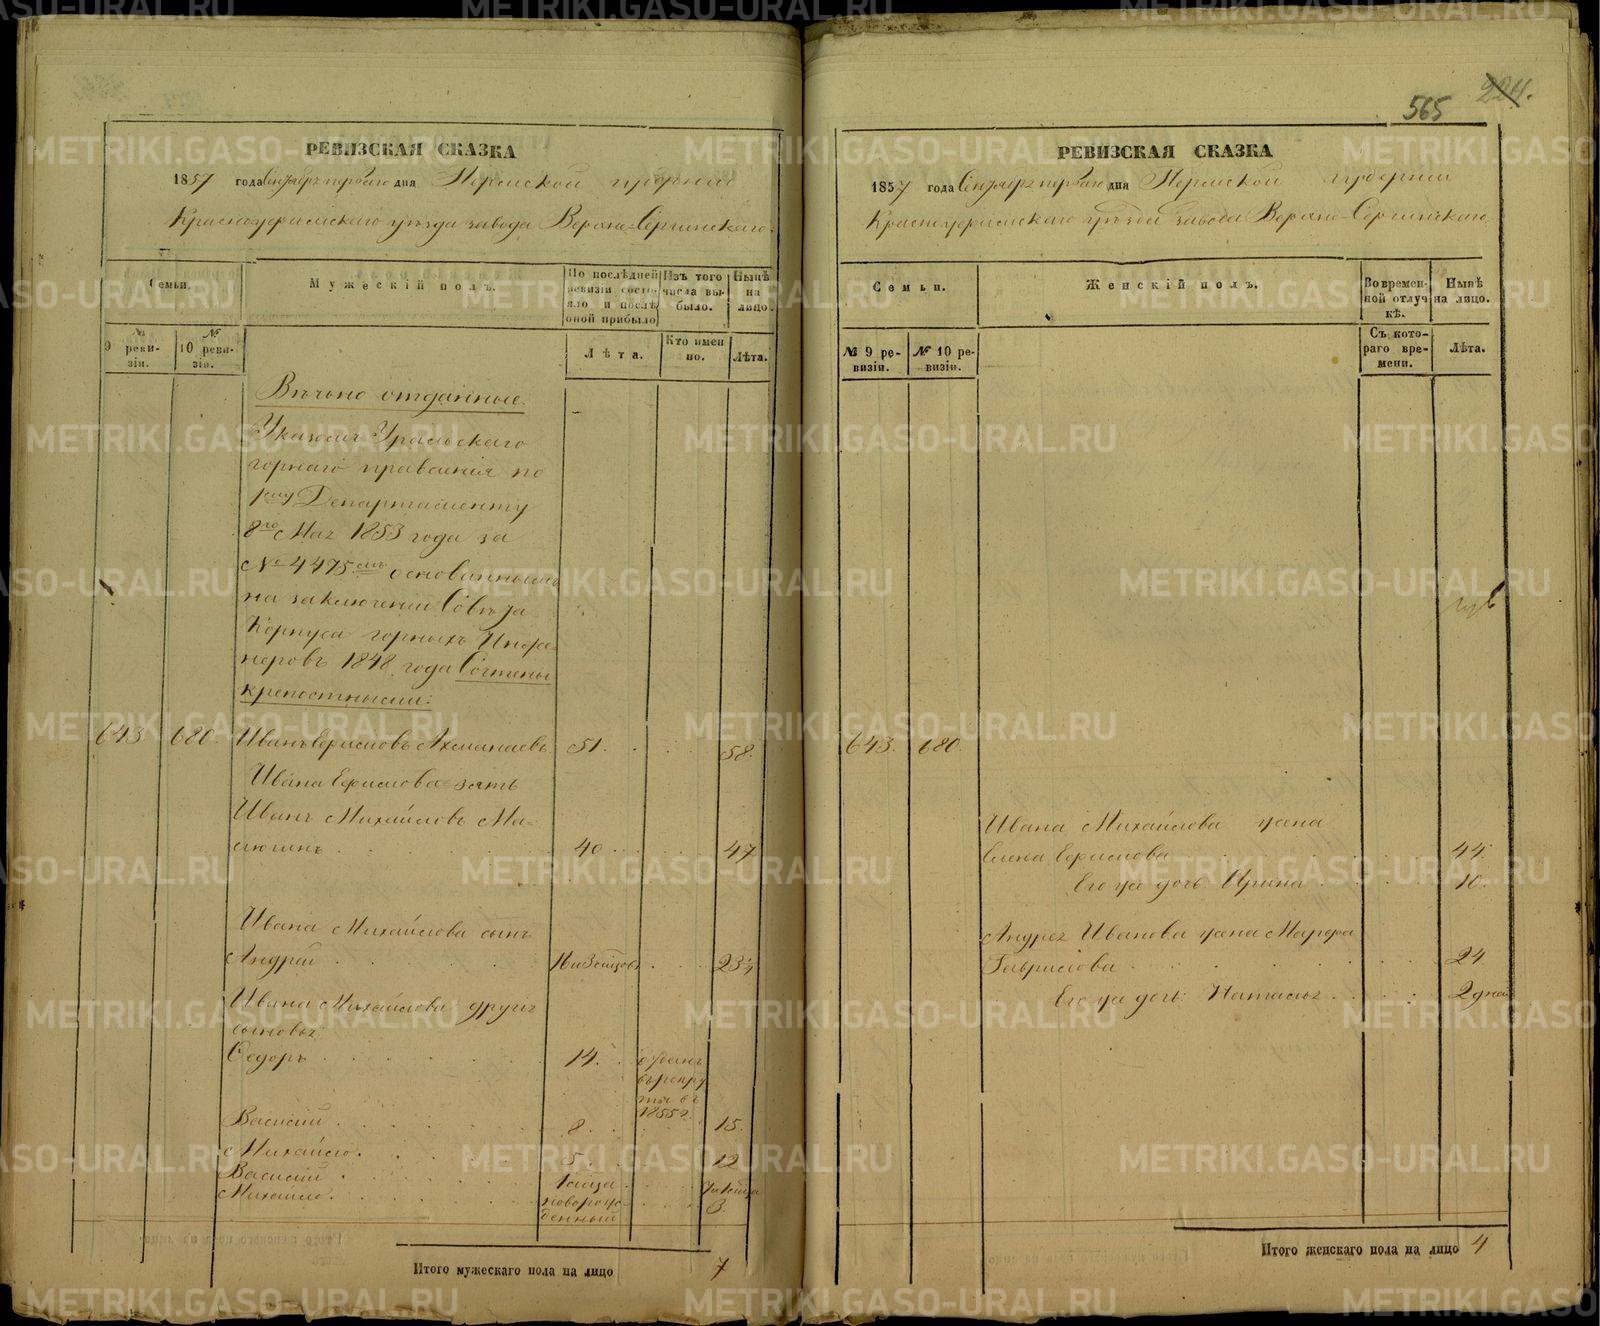 РЕВИЗСКАЯ СКАЗКА
1857 года Сентября первого дня Пермской губернии
Красноуфимскаго уѣзда завода Верхне-Сергинскаго.
Семьи.
Мужескій полъ.
По послѣдней ревизіи состояло и послѣ оной прибыло
Изъ того числа выбыло.
Нынѣ на лицо.
№ 9 ревизіи.
№ 10 ревизіи.
Лѣта.
Кто именно.
Лѣта.
Вѣчно отданные.
Указомъ Уральскаго
горнаго правленія по
1му Департаменту
8го Мая 1853 года за
№ 4475мъ основанномъ
на заключеніи Совѣта
Корпуса горныхъ Инже-
неровъ 1848 года Сочтены
крепостными:
643 680. Иванъ Ефимовъ 51. 58.
Ивана Ефимова зять
Иванъ Михайловъ Ма-
40 47
Ивана Михайлова сынъ
Андрей 23½
Ивана Михайлова другіе
сыновья:
Ѳедоръ 14. отданъ
въ рекру-
ты въ
1855 г.
Василій 8. 15.
Михайло. 5. 12
Василій
Михайло новорож- 3.
денный
Итого мужескаго пола на лицо 7
565
224.
РЕВИЗСКАЯ СКАЗКА
1857 года Сентября первого дня Пермской губернии
Красноуфимскаго уѣзда завода Верхне-Сергинскаго
Семьи.
Женскій полъ.
Во временной отлучкѣ.
Нынѣ на лицо.
№ 9 ревизіи.
№ 10 ревизіи.
Съ котораго времени.
Лѣта.
643. 680.
Ивана Михайлова жена
Елена Ефимова 44
Его же дочь Ирина 10.
Андрея Иванова жена Марфа
Гаврилова 24
Его же дочь: Наталья 2 дней
Итого женскаго пола на лицо 4
METRIKI.GASO-URAL.RU